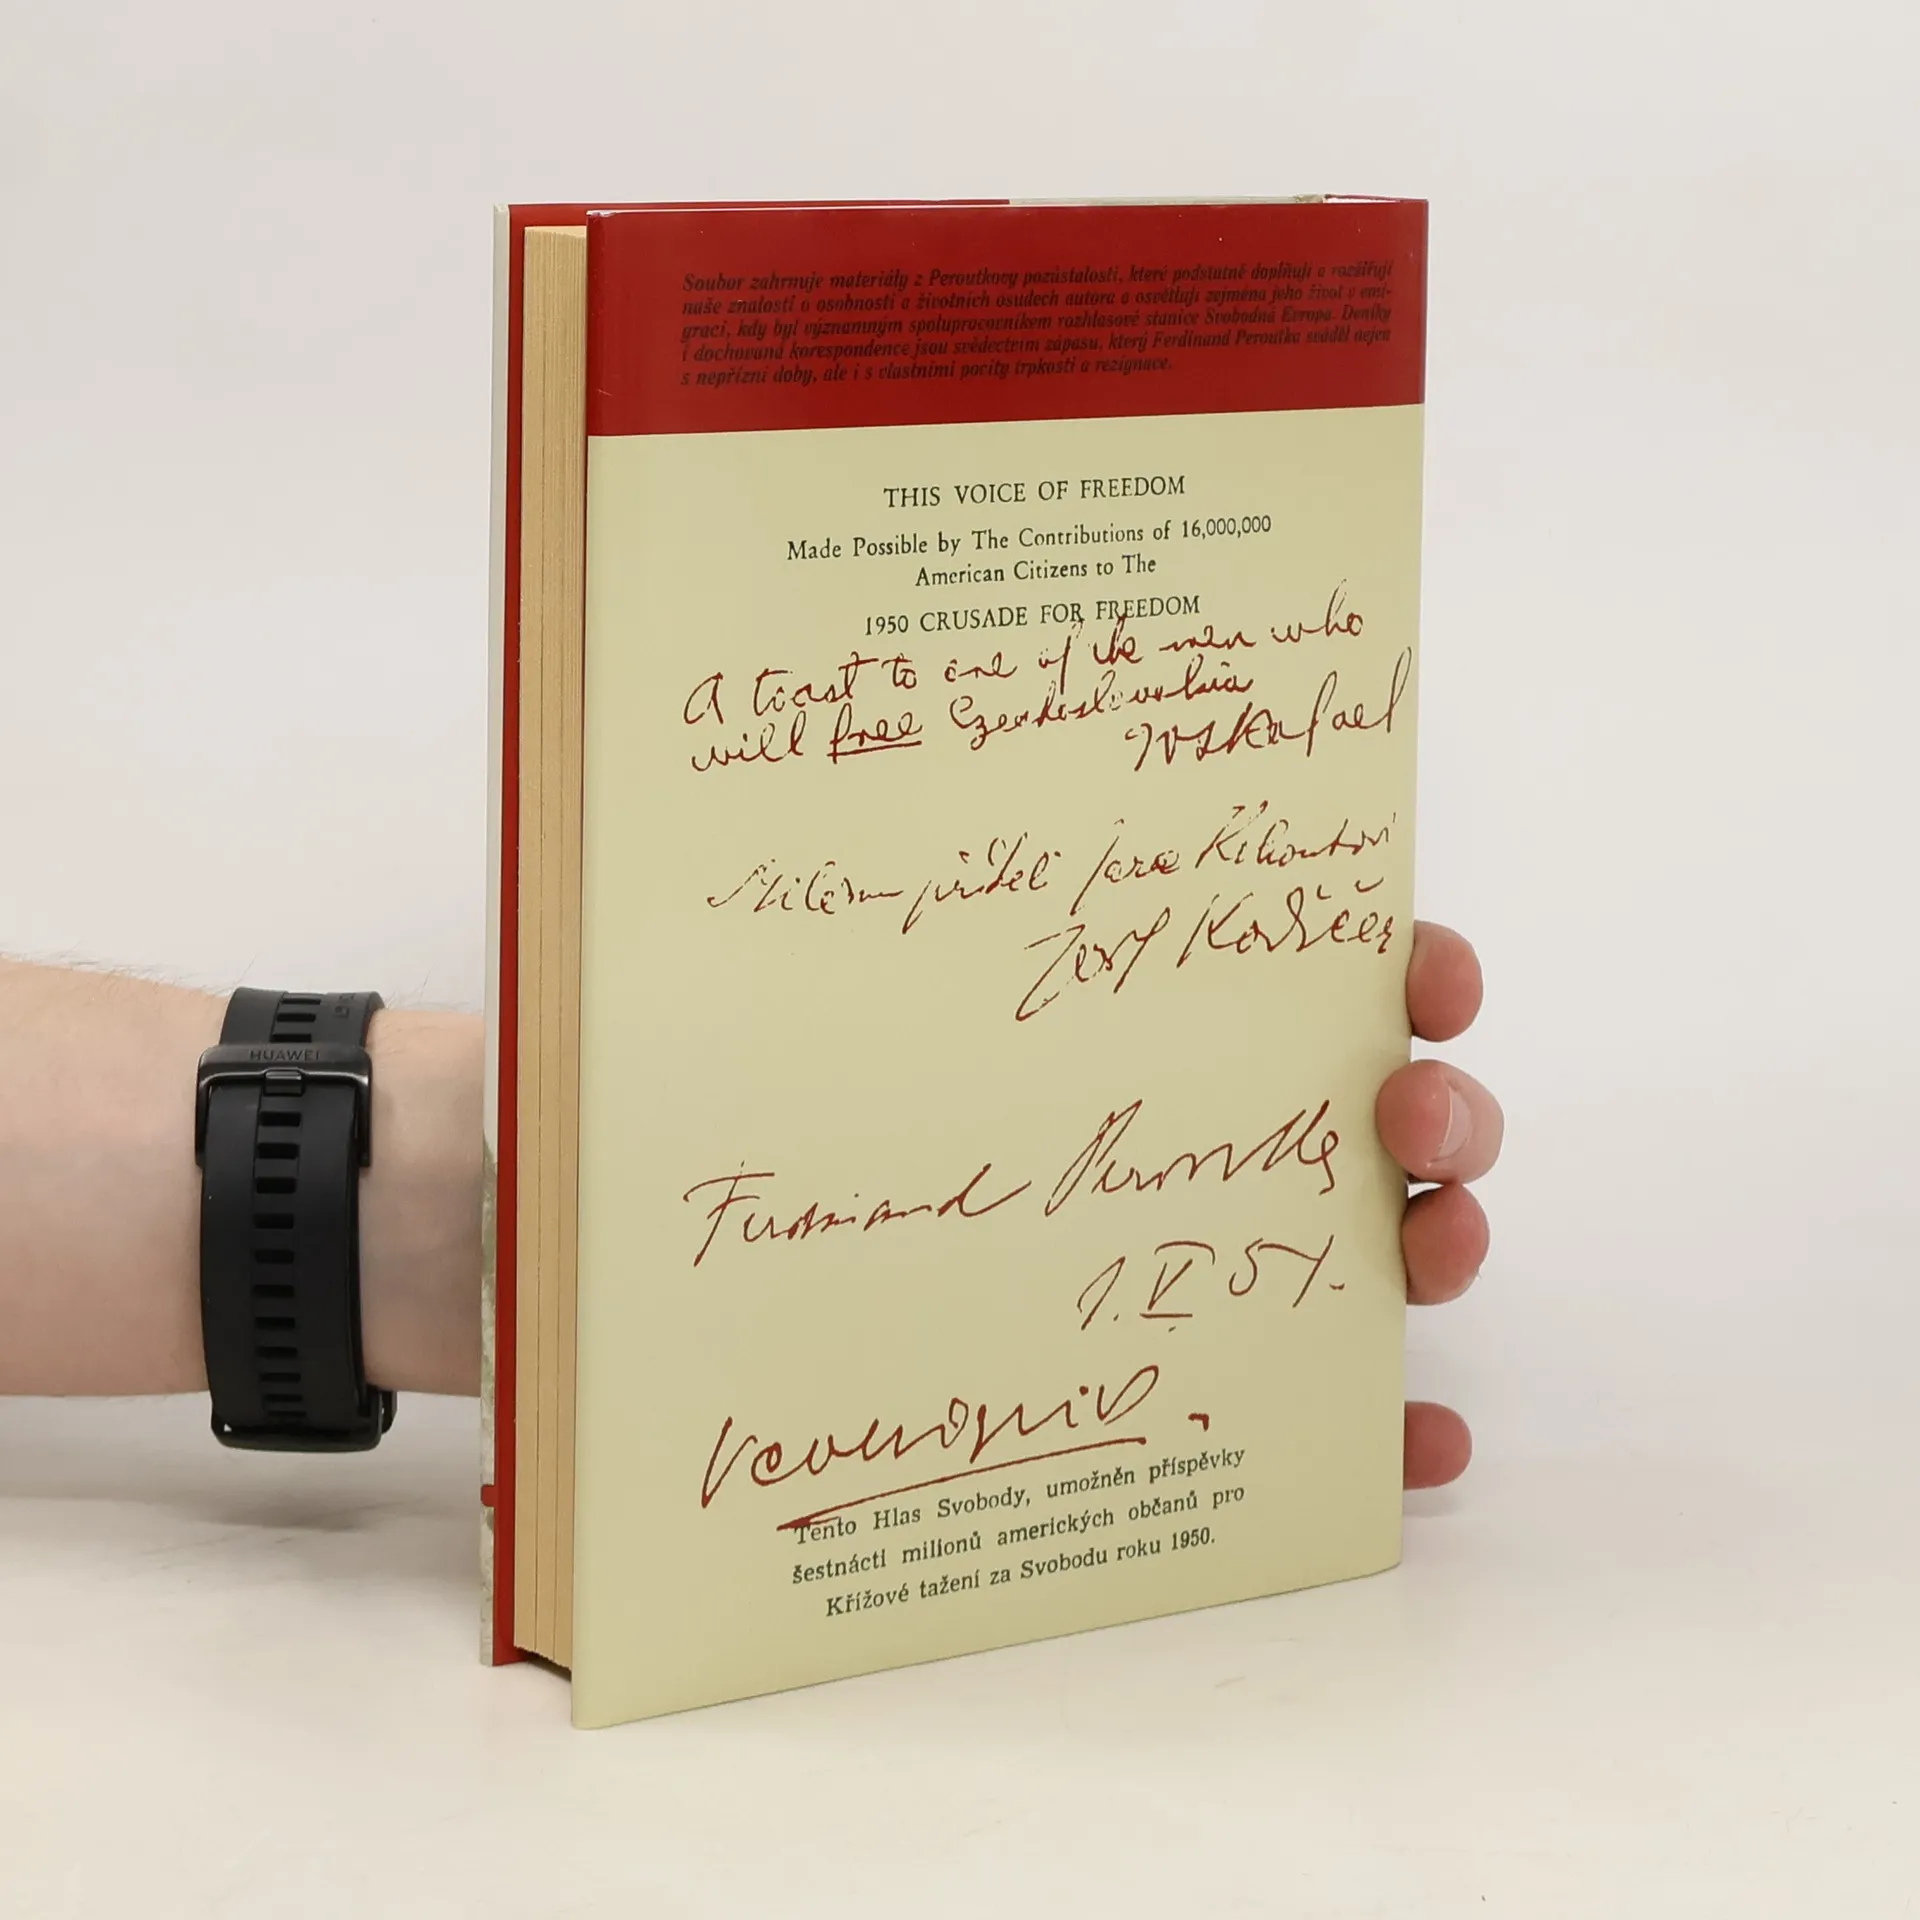 Soubor zahrnuje materiály z Peroutkovy pozůstalosti, které podstatně doplňují a rozšiřují
naše znalosti o osobnosti a životních osudech autora a osvětlují zejména jeho život v emi-
graci, kdy byl významným spolupracovníkem rozhlasové stanice Svobodná Evropa. Deníky
i dochovaná korespondence jsou svědectvím zápasu, který Ferdinand Peroutka sváděl nejen
s nepřízní doby, ale i s vlastními pocity trpkosti a rezignace.
THIS VOICE OF FREEDOM
Made Possible by The Contributions of 16,000,000
American Citizens to The
1950 CRUSADE FOR FREEDOM
A toast to one of the men who
will free Czechoslovakia
Milému příteli
Josef Kodíček
Ferdinand Peroutka
1. V 51.
Tento Hlas Svobody, umožněn příspěvky
šestnácti milionů amerických občanů pro
Křížové tažení za Svobodu roku 1950.
HUAWEI